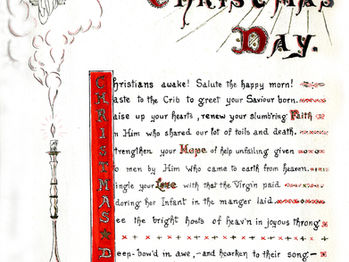 CHRISTMAS
DAY.
Christians awake! Salute the happy morn!
Haste to the Crib to greet your Saviour born.
Raise up your hearts, renew your slumb'ring Faith
In Him who shared our lot of toils and death.
Strengthen your Hope of help unfailing given
To men by Him who came to earth from heaven.
Mingle your Love with that the Virgin paid
Adoring her Infant in the manger laid.
See the bright hosts of heav'n in joyous throng
Deep-bow'd in awe, -and hearken to their song:-